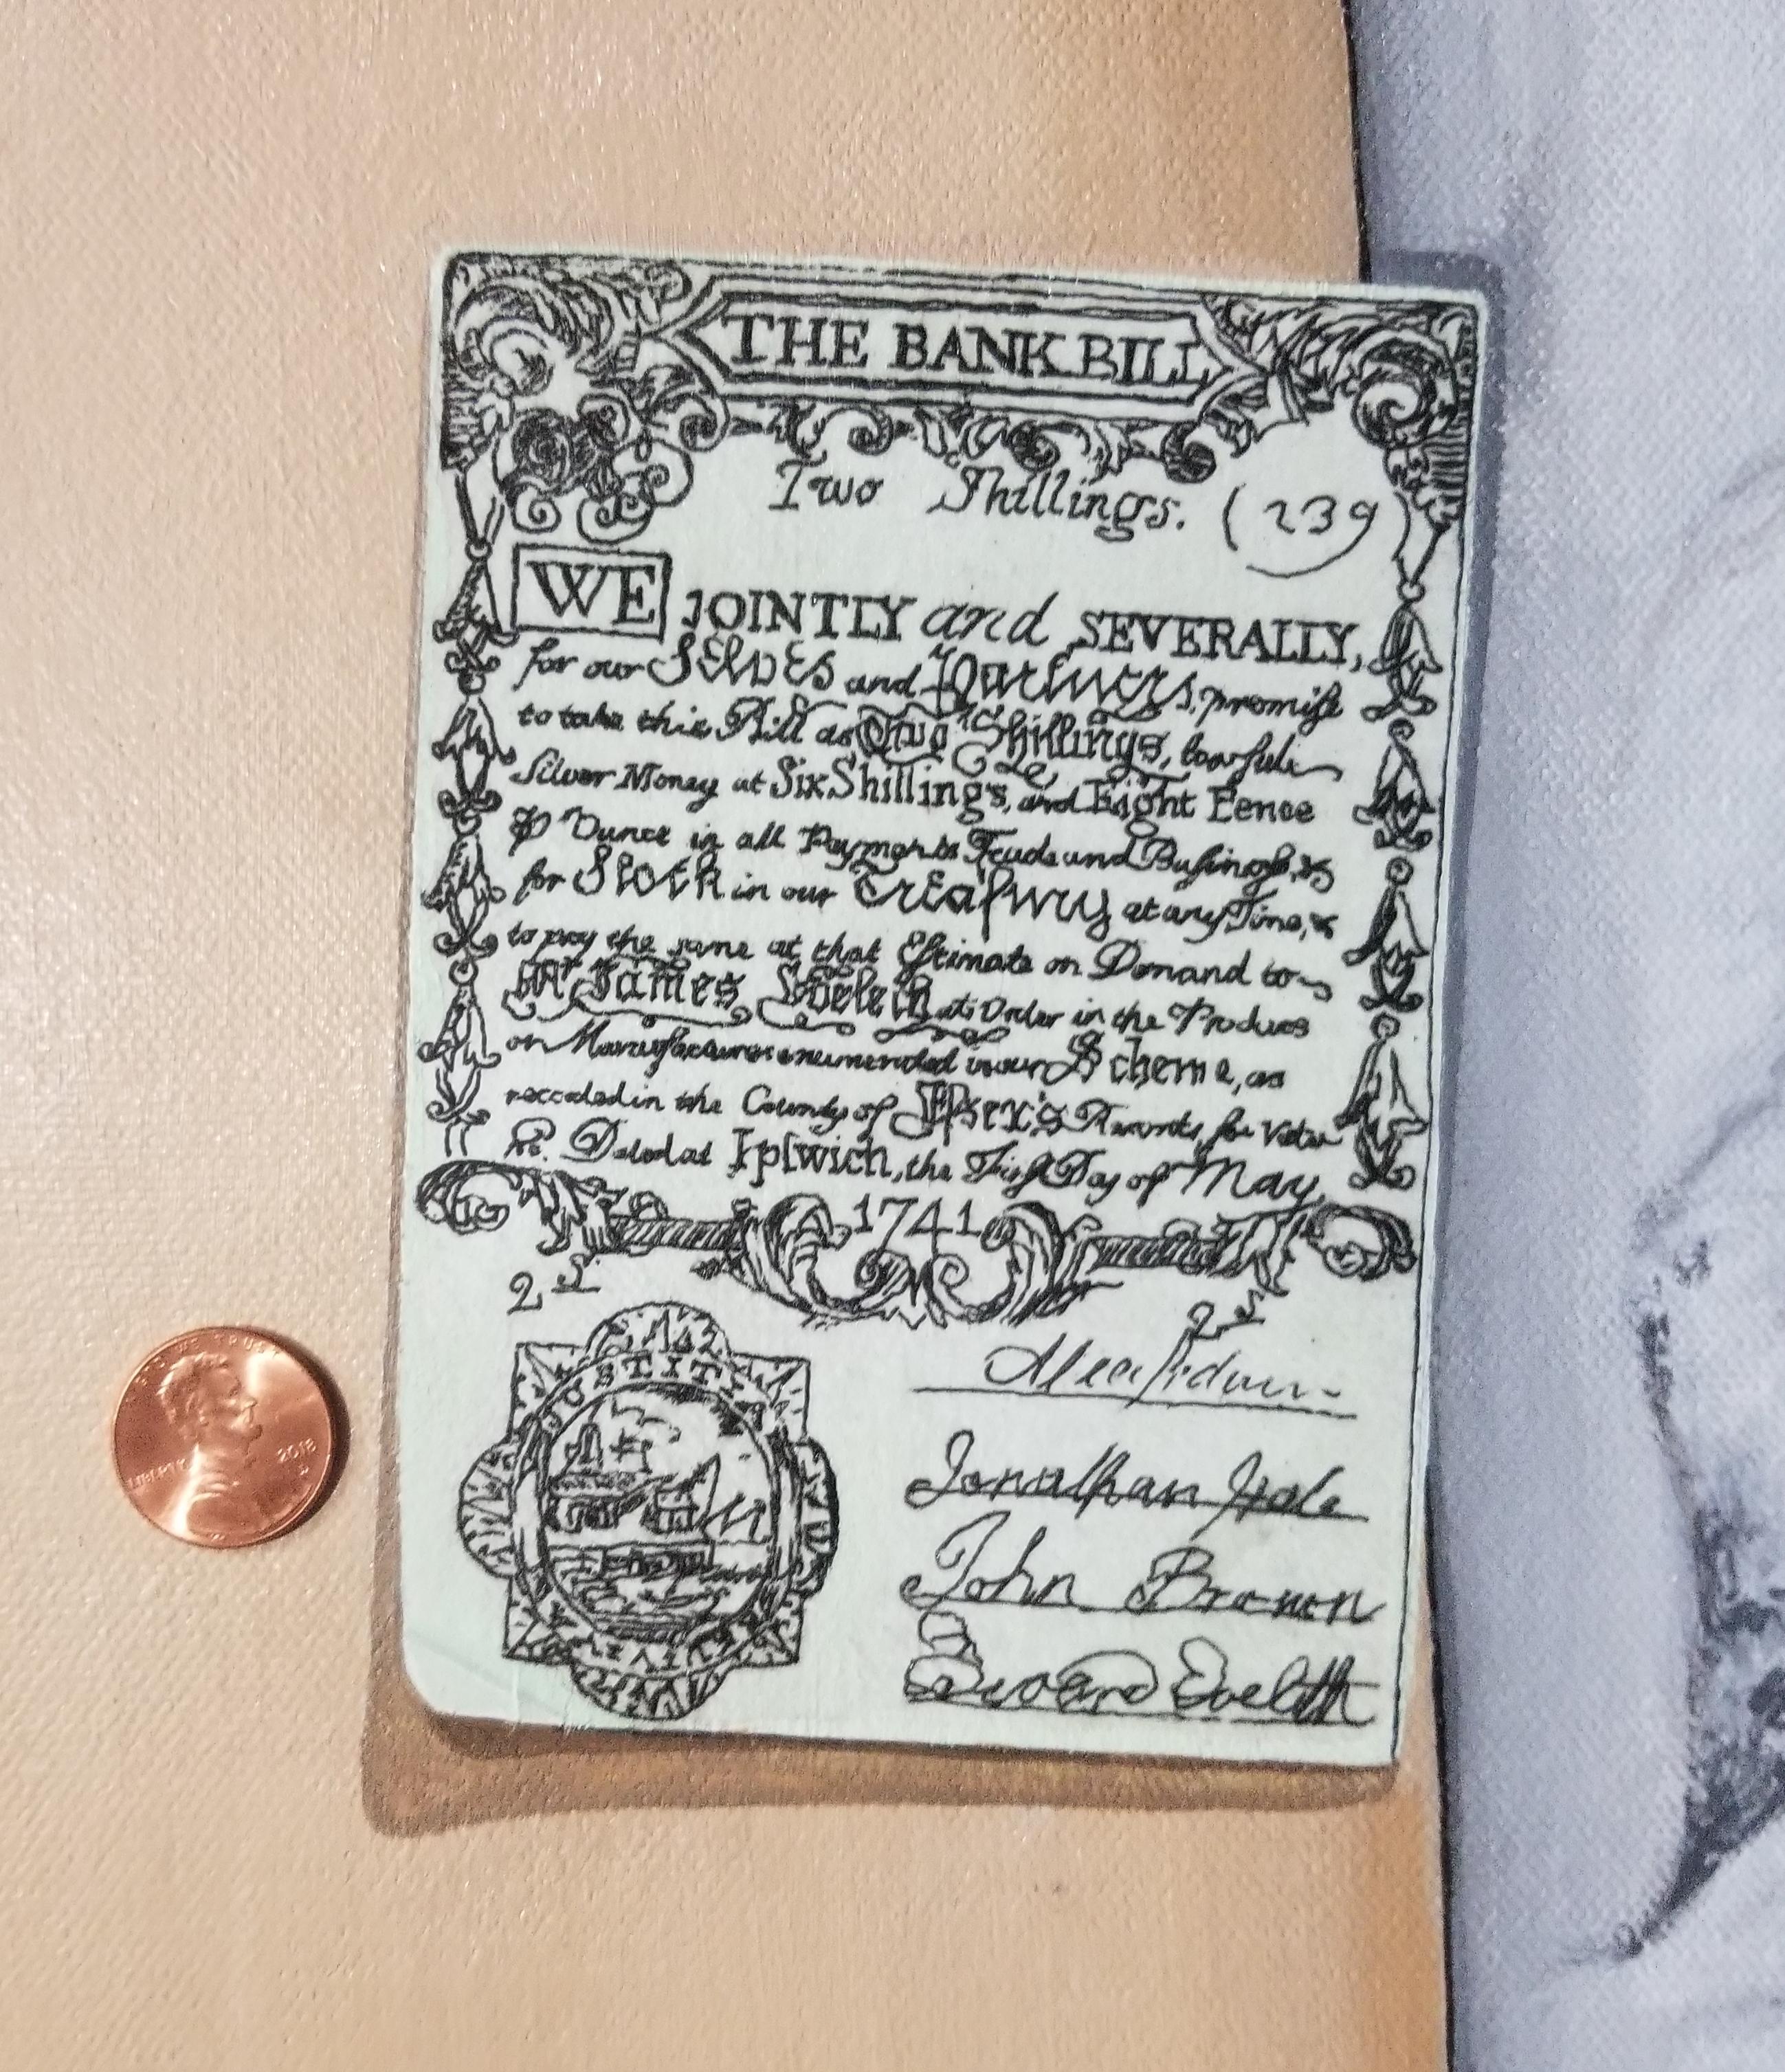 THE BANK BILL
Two Shillings. (239)
WE JOINTLY and SEVERALLY,
for our Selves and Partners, promise
to take this Bill as Two Shillings, lawful
Silver Money at Six Shillings, and Eight Eence
Ounce in all Payments Trade and Business, &
for Stock in our Treaſury at any Time, &
to pay the same at that Eſtimate on Demand to
Mr James Order in the Produce
or Manufactures enumerated in our Scheme, as
recorded in the County of Records, for
Dated at Ipſwich, the First Day of May,
1741
2 S
2 S
Jonathan Hale
John Brown
Edward Eveleth
IN GOD WE TRUST
LIBERTY
2018
D